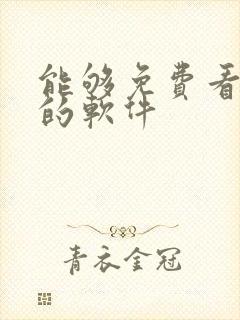 能够免費看
的軟件
青衣金冠